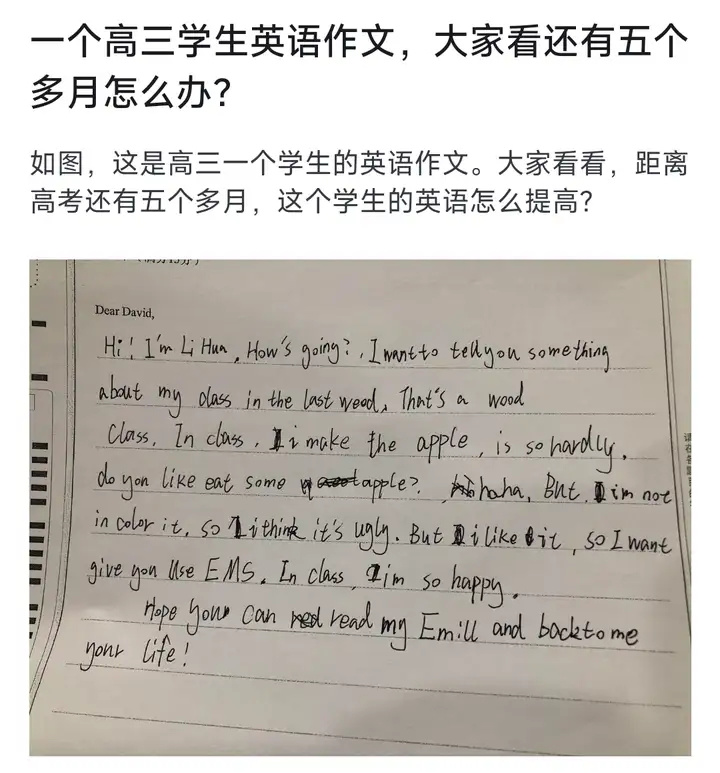 一个高三学生英语作文，大家看还有五个
多月怎么办？
如图，这是高三一个学生的英语作文。大家看看，距离
高考还有五个多月，这个学生的英语怎么提高？
Dear David,
Hi! I'm Li Hua, How's going?, I want to tell you something
about my class in the last weed, That's a wood
Class. In class, i make the apple, is so hardly.
do you like eat some apple? haha, But, im not
in color it, so i think it's ugly. But i like it, so I want
give you Use EMS. In class, im so happy.
Hope your can read my Emill and back to me
your life!